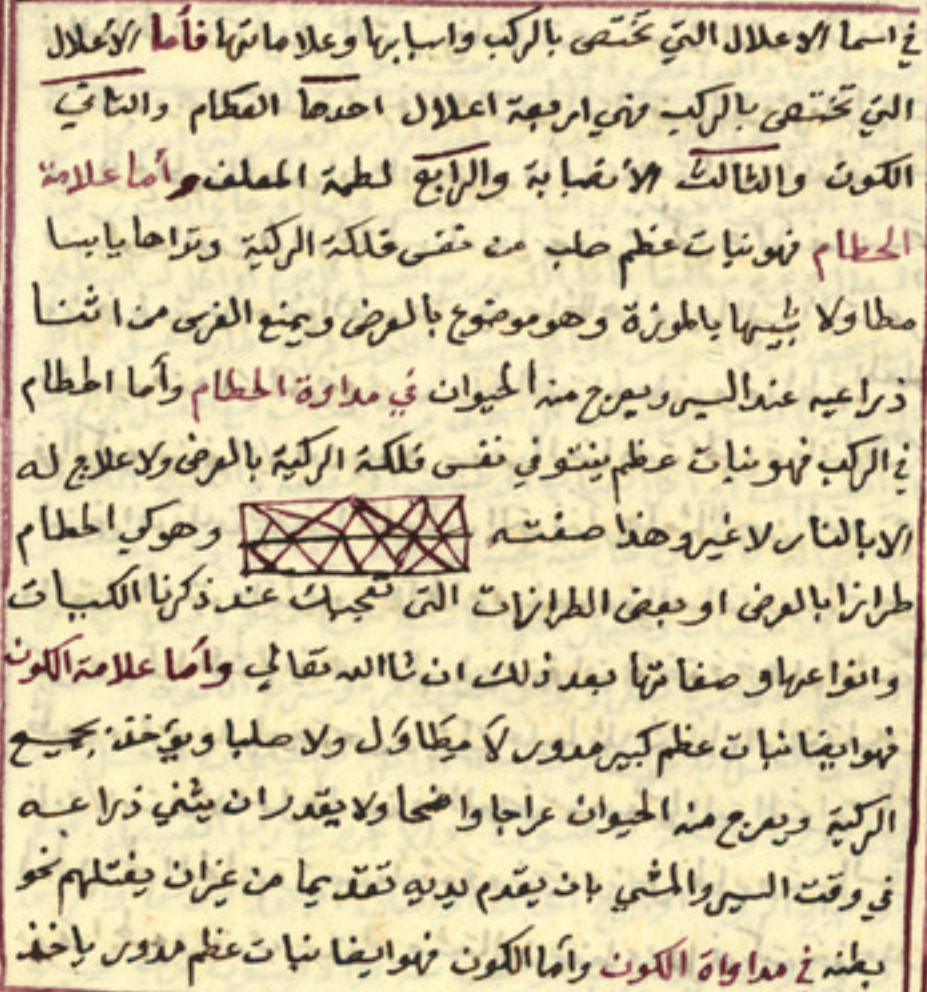 في اسما الاعلال التي تختص بالركب واسبابها وعلاماتها فأما الأعلال
التي تختص بالركب فهي اربعة اعلال احدها العظام والثاني
الكون والثالث الأنصبابة والرابع لطمة المعلف وأما علامة
الحطام فهو نبات عظم صلب من نفس فلكة الركبة وتراها يابسا
مطاولا شبيها بالموزة وهو موضوع بالعرض ويمنع الفرس من اثنا
ذراعيه عند السير ويعرج منه الحيوان في مداوة الحطام وأما الحطام
في الركب فهو نبات عظم ينتو في نفس فلكة الركبة بالعرض ولا علاج له
الا بالنار لا غير وهذا صفته وهو كي الحطام
طرازا بالعرض او بعض الطرازات التي تعجبك عند ذكرنا الكييات
وانواعها وصفاتها بعد ذلك ان شاالله تعالي وأما علامة الكون
فهو ايضا نبات عظم كبير مدور لا ميطاول ولا صلبا ويؤخذ بجميع
الركبة ويعرج منه الحيوان عراجا واضحا ولا يقدر ان يثني ذراعيه
في وقت السير والمشي بان يقدم يديه تقديما من غير ان يفتلهم نحو
بطنه في مداواة الكون وأما الكون فهو ايضا نبات عظم مدور ياخذ